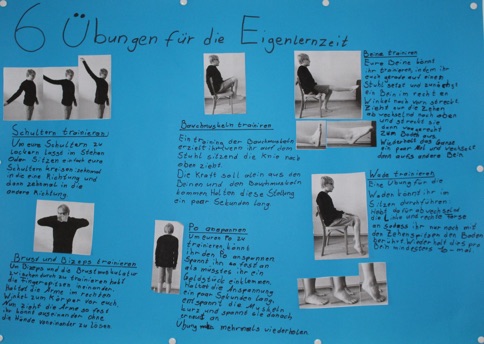 6 Übungen für die Eigenlernzeit
Schultern trainieren:
Um eure Schultern zu
lockern lasst im Stehen
Oder Sitzen einfach eure
Schultern kreisen: zehnmal
in die eine Richtung und
dann zehnmal in die
andere Richtung.
Brust und Bizeps trainieren
Um Bizeps und die Brustmuskulatur
zwischen durch zu trainieren hakt
die Fingerspitzen ineinander.
Haltet die Arme im rechten
Winkel zum Körper vor euch.
Nun zieht die Arme so fest
ihr könnt auseinander ohne
die Hände voneinander zu lösen.
Bauchmuskeln trainiren
Ein training der Bauchmuskeln
erzielt ihr wenn ihr auf dem
Stuhl sitzend die Knie nach
oben zieht.
Die Kraft soll allein aus den
Beinen und den Bauchmuskeln
kommen Halten diese Stellung
ein paar Sekunden lang
Po anspannen
Um euren Po zu
trainieren, könnt
ihr den Po anspannen.
Spannt ihn so fest an
als müsstet ihr ein
Geldstück einklemmen.
Haltet die Anspannung
ein paar Sekunden lang,
entspannt die Muskeln
kurz und spannt sie danach
erneut an
Übung mehrmals wiederholen
Beine trainiren
Eure Beine könnt
ihr trainieren, indem ihr
euch gerade auf einen
Stuhl setzt und zunächst
ein Bein im rechten
Winkel nach vorn streckt
Zieht nun die Zehen
abwechselnd nach oben
und streckt sie
dann waagerecht
zum Boden aus
Wiederholt das Ganze
ein paar Mal und wechselt
dann aufs andere Bein.
Wade trainieren
Eine Übung für die
Waden könnt ihr im
Sitzen durchführen
Hebt dafür abwechselnd
die Linke und rechte Ferse
an sodass ihr nur noch mit
den Zehenspitzen den Boden
berührt Wiederholt dies pro
Bein mindestens 10-mal.